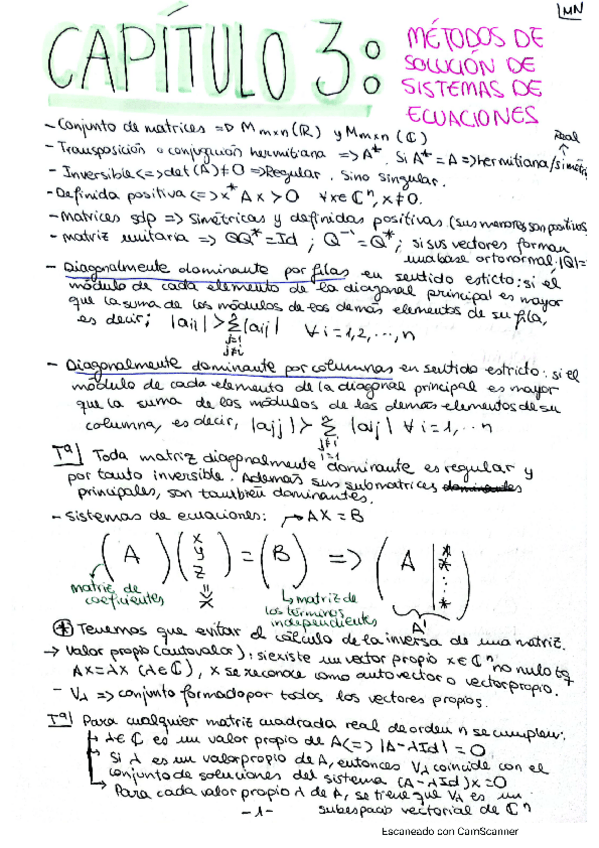 MN
CAPÍTULO 3:
MÉTODOS DE
SOLUCIÓN DE
SISTEMAS DE
ECUACIONES
- Conjunto de matrices => Mmxn(R) y Mmxn(C)
Real
- Transposición o conjugación hermitiana => A*. Si A* = A => hermitiana/simétri
- Inversible <=> det(A) ≠ 0 => Regular. Sino singular.
- Definida positiva <=> x* A x > 0 ∀x∈ℂⁿ, x ≠ 0.
- Matrices sdp => Simétricas y definidas positivas (sus menores son positivos
- matriz unitaria => QQ* = Id ; Q⁻¹ = Q* ; si sus vectores forman
una base ortonormal, |Q|=
- Diagonalmente dominante por filas en sentido esticto: si el
módulo de cada elemento de la diagonal principal es mayor
que la suma de los módulos de los demás elementos de su fila,
es decir; |aii| > Σ |aij| ∀ i = 1,2,...,n
n
j=1
j≠i
- Diagonalmente dominante por columnas en sentido estricto: si el
módulo de cada elemento de la diagonal principal es mayor
que la suma de los módulos de los demás elementos de su
columna, es decir, |ajj| > Σ |aij| ∀ i = 1,...n
n
j≠i
i=1
Tª| Toda matriz diagonalmente dominante es regular y
por tanto inversible. Además sus submatrices
principales, son también dominantes.
- Sistemas de ecuaciones: → AX = B
(A) (x y z) = (B) => (A | * * : *)
X
A'
matriz de
coeficientes
matriz de
los términos
independientes
* Tenemos que evitar el cálculo de la inversa de una matriz.
→ Valor propio (autovalor): si existe un vector propio x∈ℂⁿ no nulo tq
Ax = λx (λ∈ℂ), x se reconoce como autovector o vector propio.
- Vλ => conjunto formado por todos los vectores propios.
Tª| Para cualquier matriz cuadrada real de orden n se cumplen:
→ λ∈ℂ es un valor propio de A <=> |A-λId| = 0
→ Si λ es un valor propio de A, entonces Vλ coincide con el
conjunto de soluciones del sistema (A-λId)x = 0
→ Para cada valor propio λ de A, se tiene que Vλ es un
subespacio vectorial de ℂⁿ
-1-
Escaneado con CamScanner